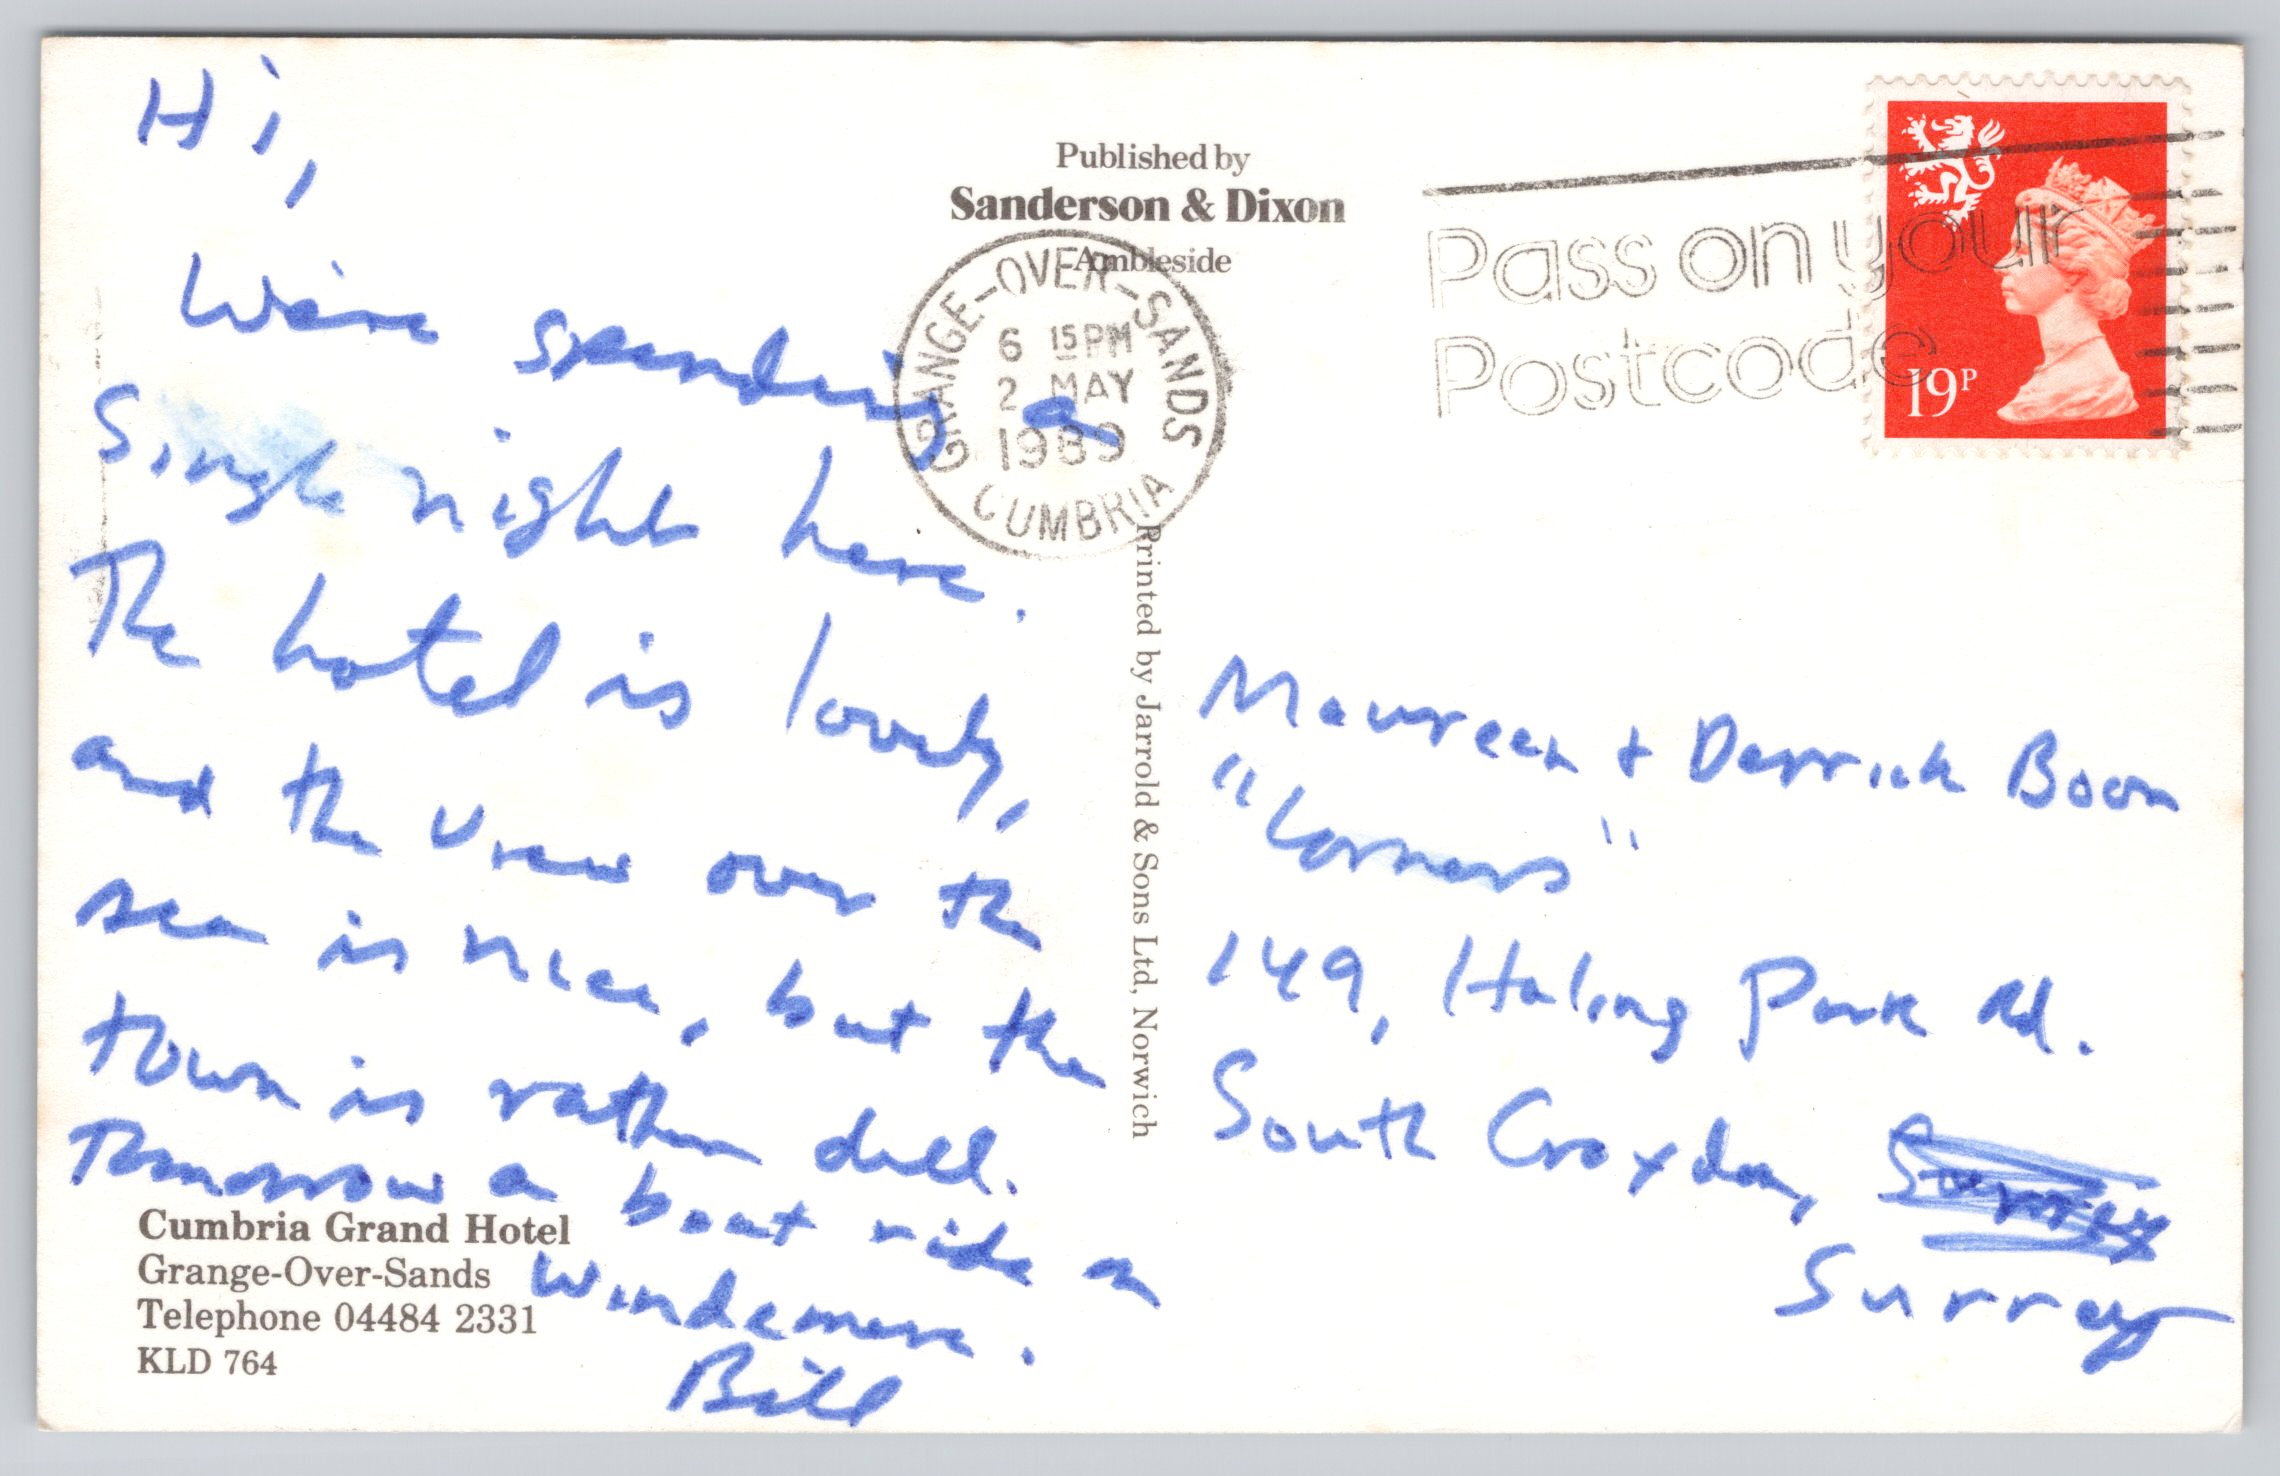 Hi,
We're spending a
single night here.
The hotel is lovely,
and the view over the
sea is nice, but the
town is rather dull.
Tomorrow a boat ride on
Windemere.
Bill
Cumbria Grand Hotel
Grange-Over-Sands
Telephone 04484 2331
KLD 764
Published by
Sanderson & Dixon
Ambleside
GRANGE-OVER-SANDS
6 15PM
2 MAY
1989
CUMBRIA
Printed by Jarrold & Sons Ltd, Norwich
Pass on your
Postcode
19P
Maureen + Derrick Boon
"Corners"
149, Haling Park Rd.
South Croydon,
Surrey